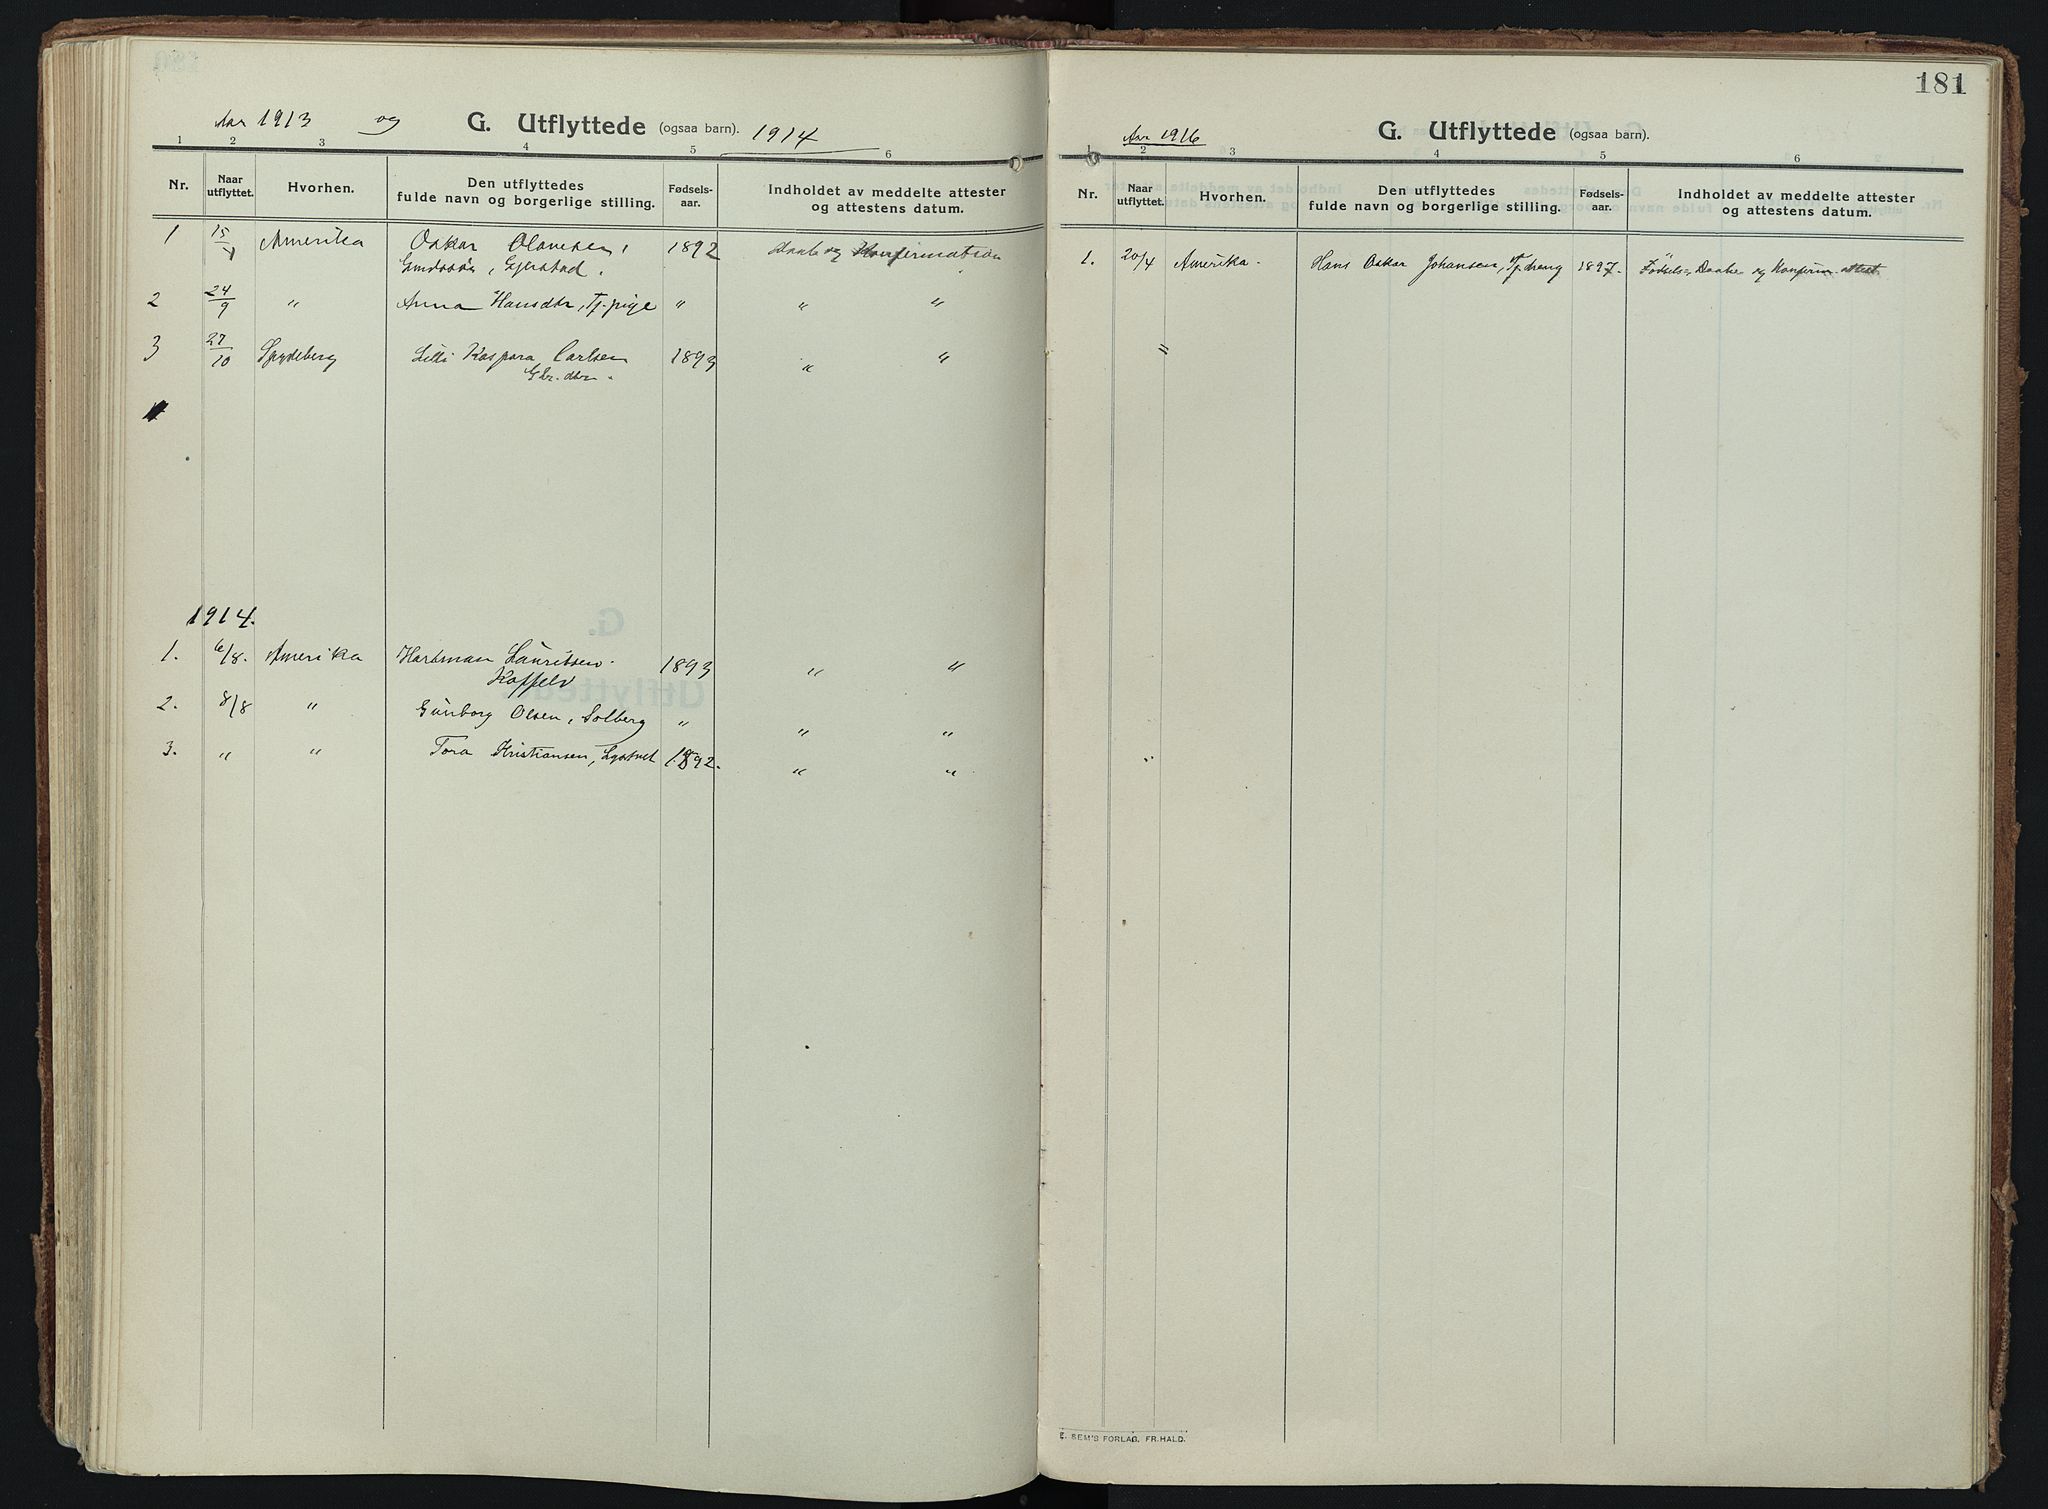 Aar 1913 og G. Utflyttede (ogsaa barn). 1914
1 2 3 4 5 6
Nr. Naar utflyttet. Hvorhen. Den utflyttedes fulde navn og borgerlige stilling. Fødsels-aar. Indholdet av meddelte attester og attestens datum.
1 15/ Amerika Oskar Olavesen, 1892 Daab og Konfirmation
Gjerstad.
2 24/9 " Anna Hansdtr, Tj.pige " " "
3 27/10 Spydeberg Lilli Kaspara Carlsen 1893 " "
Gbr.dtr.
1914.
1. 6/8. Amerika Hartman Lauritsen. 1893 " "
2. 8/8 " Gunborg Olsen, Solberg " " "
3. " " Tora Kristiansen, 1892. " "
181
Aar 1916 G. Utflyttede (ogsaa barn).
1 2 3 4 5 6
Nr. Naar utflyttet. Hvorhen. Den utflyttedes fulde navn og borgerlige stilling. Fødsels-aar. Indholdet av meddelte attester og attestens datum.
1. 20/4 Amerika. Hans Oskar Johansen, Tj.dreng 1897. Fødsels-, Daabs- og Konfirm. attest
E. SEM'S FORLAG, FR.HALD.